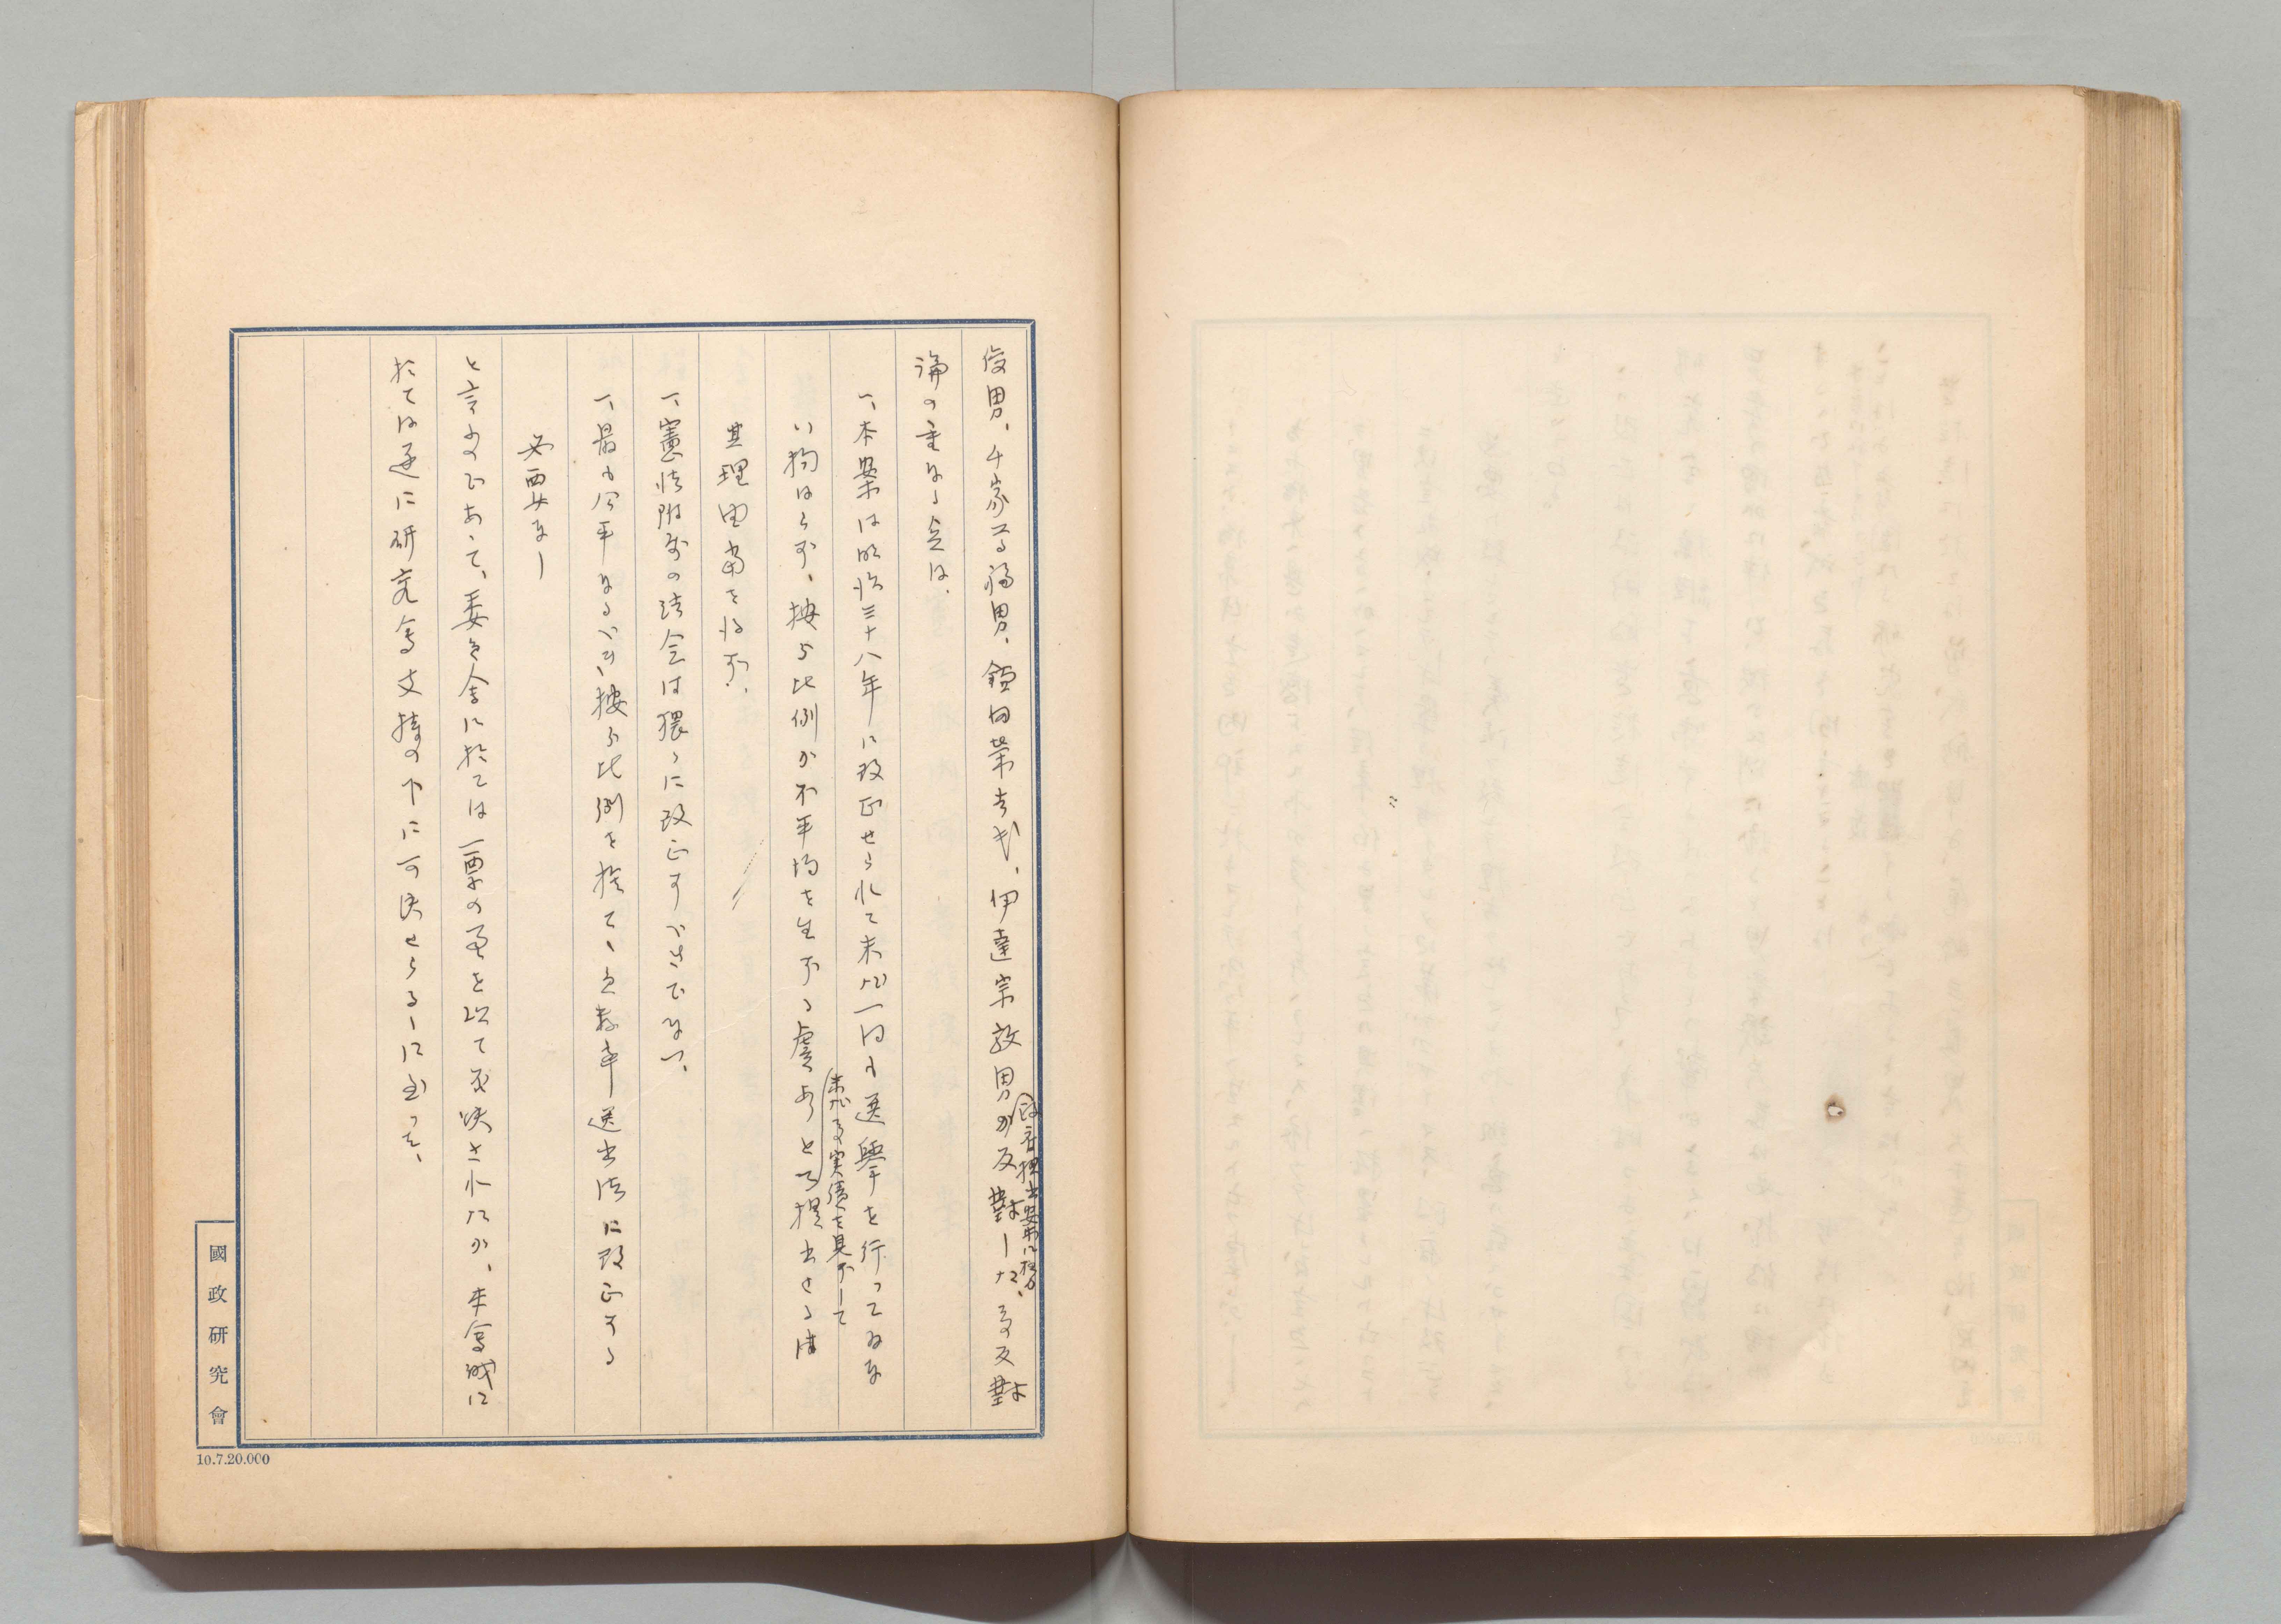 俊男、千家尊福男、鎌田榮吉氏、伊達宗敦男が反對した、その反對
政府提出案に極力
論の重なる点は、
一、本案は明治三十八年に改正せられて未だ一回も選擧を行ってゐな
い物ならず、按分比例が不平均を生ずる虞ありとて提出せるは
未だその実績を見ずして
其理由當を得ず、
一、憲法附属の法令は猥りに改正すべきでない、
一、最も公平なるべき、按分比例を捨て、定数率選出法に改正する
必要なし
と言ふのであって、委員会に於ては一票の差を以て否決されたが、本會議に
於ては遂に研究會支持の下に可決せらるゝに至った、
國政研究會
10.7.20.000